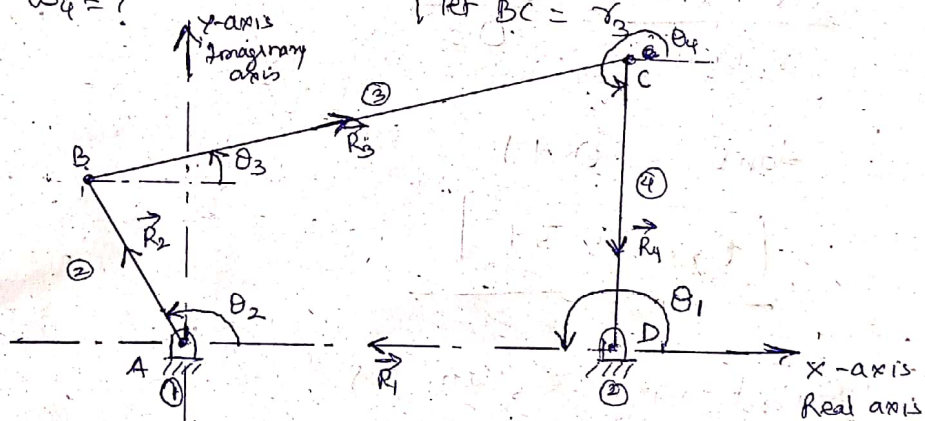 ω₄ = ?
Let BC = r₃
Y-axis
Imaginary
axis
θ₄
C
③
R₃
θ₃
B
④
R₂
R₄
②
θ₂
θ₁
A
D
R₁
①
②
X-axis
Real axis